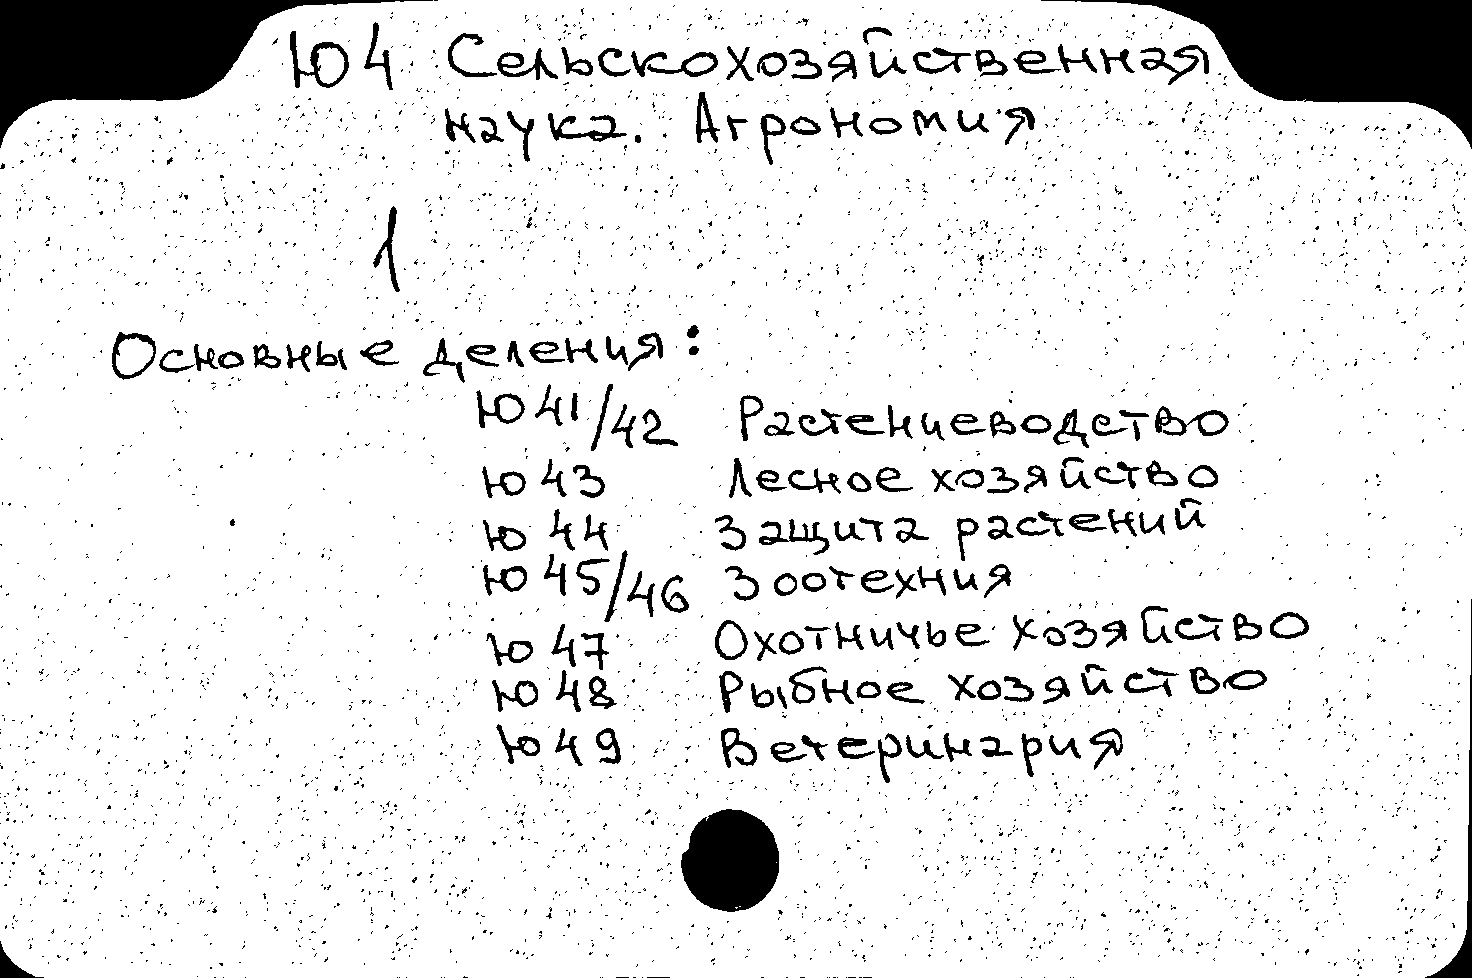 Ю4 Сельскохозяйственная
наука. Агрономия
1
Основные деления:
Ю41/42 Растениеводство
Ю43 Лесное хозяйство
Ю44 Защита растений
Ю45/46 Зоотехния
Ю47 Охотничье хозяйство
Ю48 Рыбное хозяйство
Ю49 Ветеринария